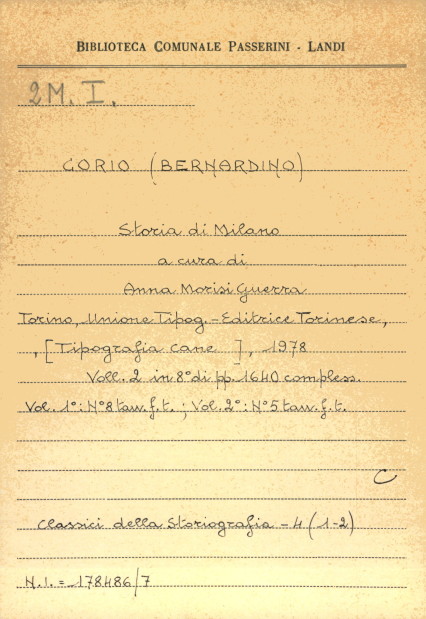 BIBLIOTECA COMUNALE PASSERINI - LANDI
2M. I.
CORIO (BERNARDINO)
Storia di Milano
a cura di
Anna Morisi Guerra
Torino, Unione Tipog.-Editrice Torinese,
, [Tipografia Cane ], 1978
Voll. 2 in 8° di pp. 1640 compless.
Vol. 1°: N° 8 tav. f. t. ; Vol. 2°: N° 5 tav. f. t.
C
Classici della Storiografia - 4 (1-2)
N.I. = 178486/7